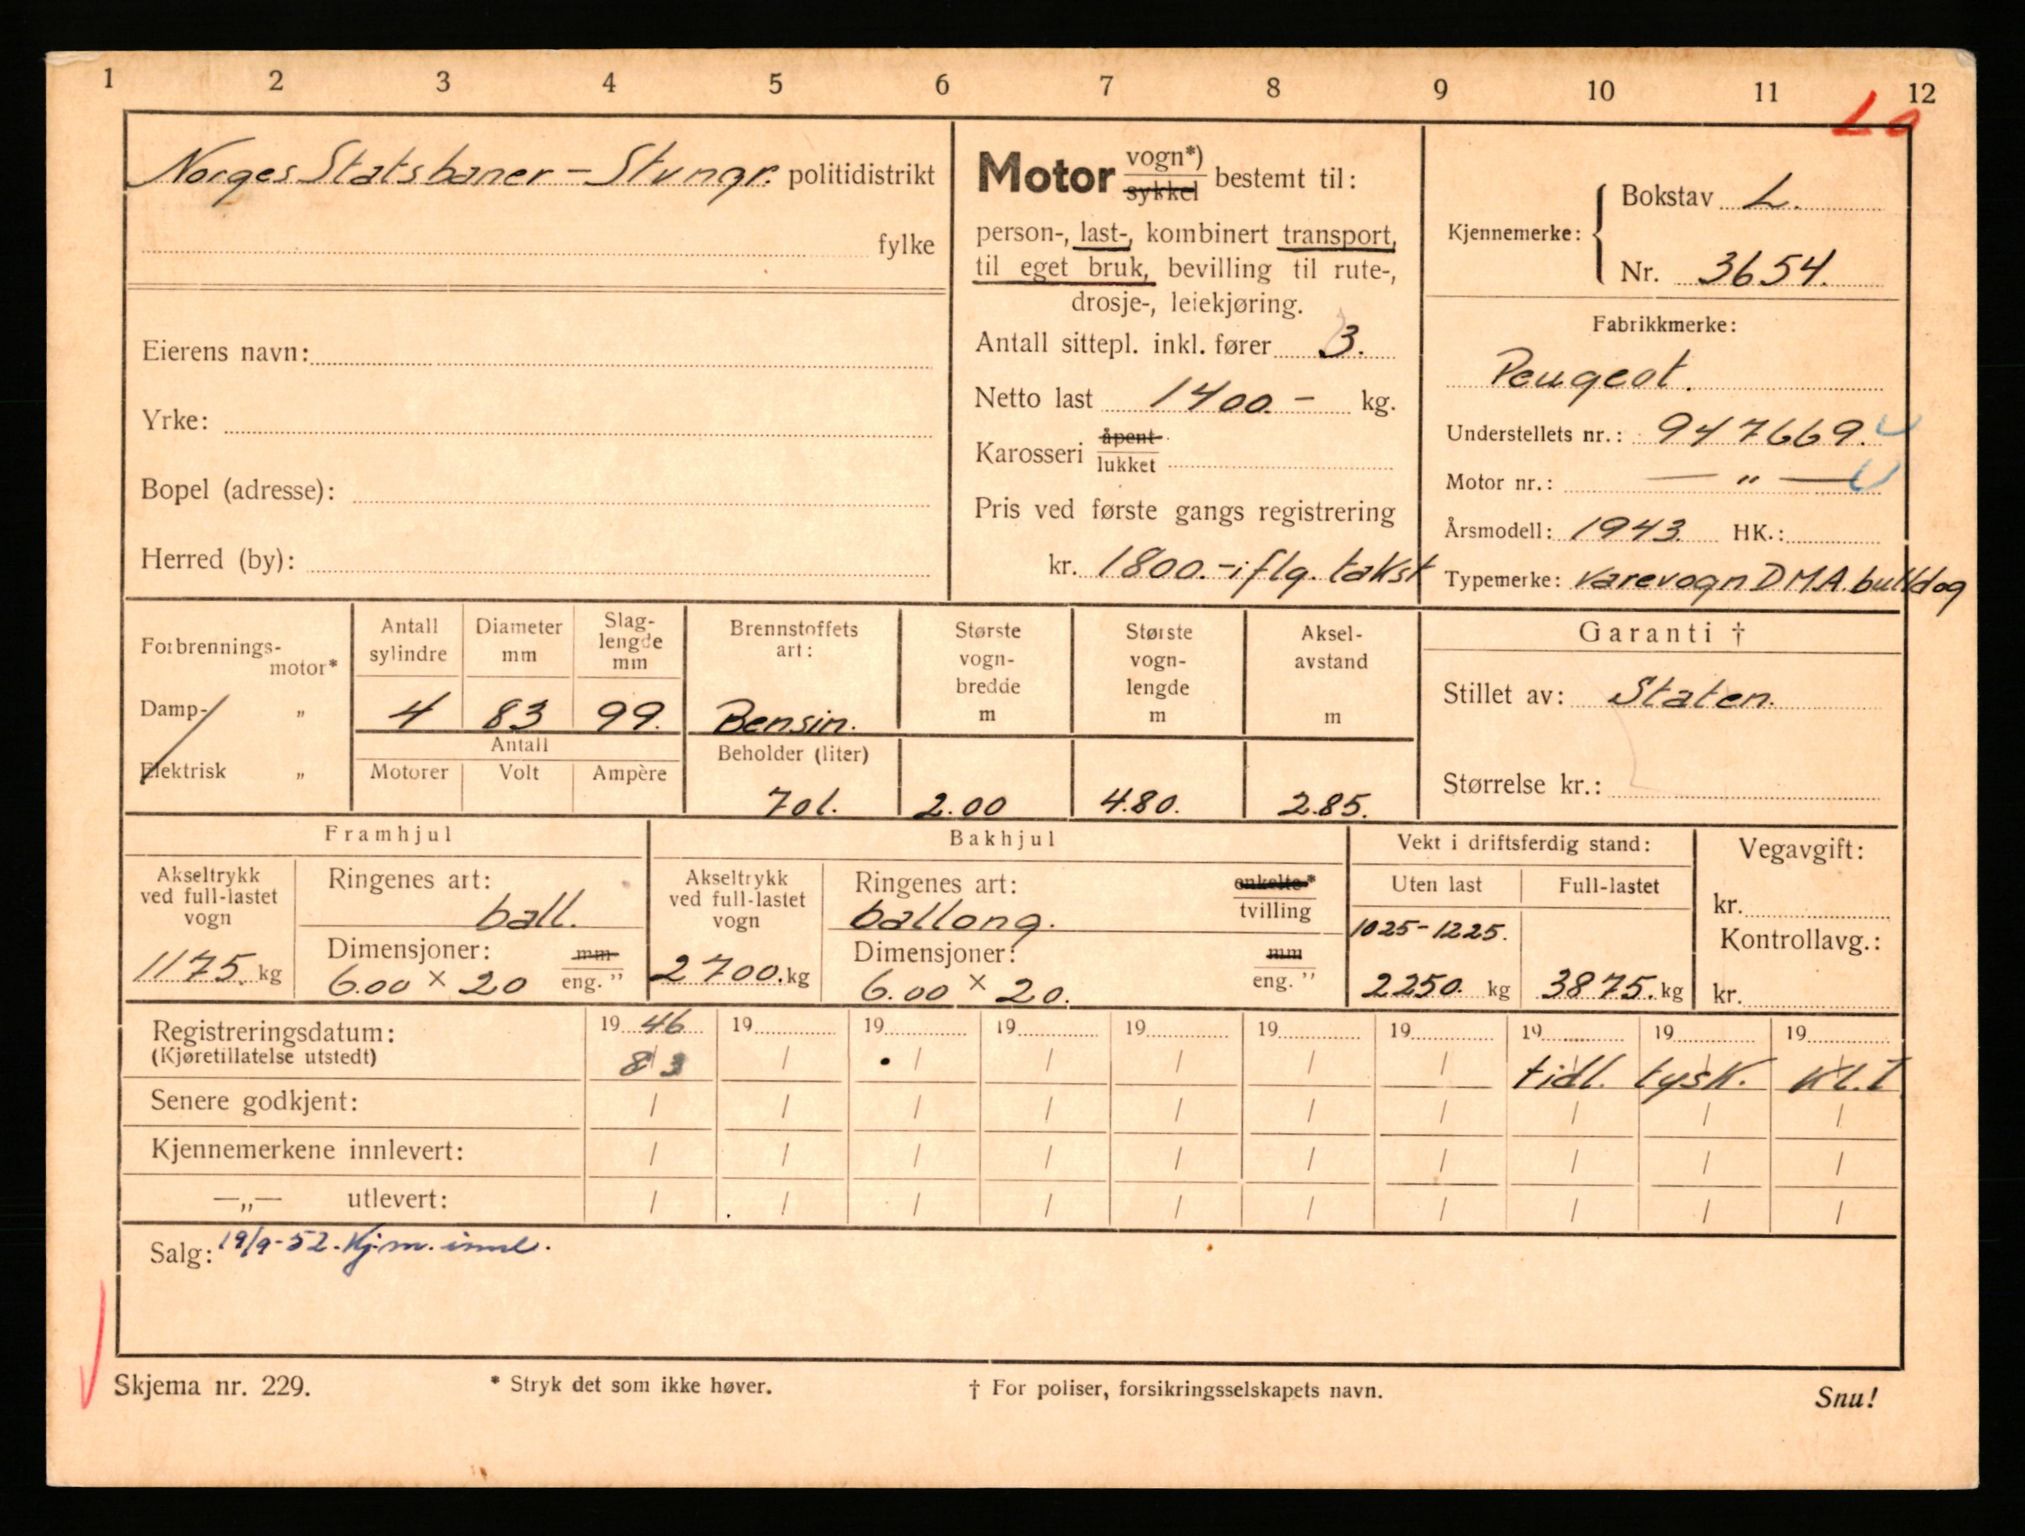 1 2 3 4 5 6 7 8 9 10 11 12
Norges Statsbaner - Stvngr. politidistrikt
fylke
Eierens navn:
Yrke:
Bopel (adresse):
Herred (by):
Motor vogn*) sykkel bestemt til:
person-, last-, kombinert transport,
til eget bruk, bevilling til rute-,
drosje-, leiekjøring.
Antall sittepl. inkl. fører 3.
Netto last 1400.- kg.
Karosseri åpent lukket
Pris ved første gangs registrering
kr. 1800.- iflg. takst
Kjennemerke:
Bokstav L.
Nr. 3654.
Fabrikkmerke:
Peugeot.
Understellets nr.: 947669.
Motor nr.: — " —
Årsmodell: 1943. HK.:
Typemerke: varevogn DMA. bulldog
Forbrennings-
motor*
Damp- "
Elektrisk "
Antall
sylindre
4
Diameter
mm
83
Slag-
lengde
mm
99.
Antall
Motorer Volt Ampère
Brennstoffets
art:
Bensin.
Beholder (liter)
70 l.
Største
vogn-
bredde
m
2.00
Største
vogn-
lengde
m
4.80.
Aksel-
avstand
m
2.85.
Garanti †
Stillet av: Staten.
Størrelse kr.:
Framhjul
Akseltrykk
ved full-lastet
vogn
1175. kg
Ringenes art:
ball.
Dimensjoner: mm
6.00 × 20 eng. "
Bakhjul
Akseltrykk
ved full-lastet
vogn
2700. kg
Ringenes art: enkelte*
ballong. tvilling
Dimensjoner: mm
6.00 × 20. eng. "
Vekt i driftsferdig stand:
Uten last Full-lastet
1025-1225.
2250. kg 3875. kg
Vegavgift:
kr.
Kontrollavg.:
kr.
Registreringsdatum: 19 46 19 19 19 19 19 19 19 19 19
(Kjøretillatelse utstedt) 8/3 / / / / / / tidl. tysk. kl. I
Senere godkjent: / / / / / / / / / /
Kjennemerkene innlevert: / / / / / / / / / /
—„— utlevert: / / / / / / / / / /
Salg: 19/9-52. Kj.m. innl.
Skjema nr. 229. * Stryk det som ikke høver. † For poliser, forsikringsselskapets navn. Snu!